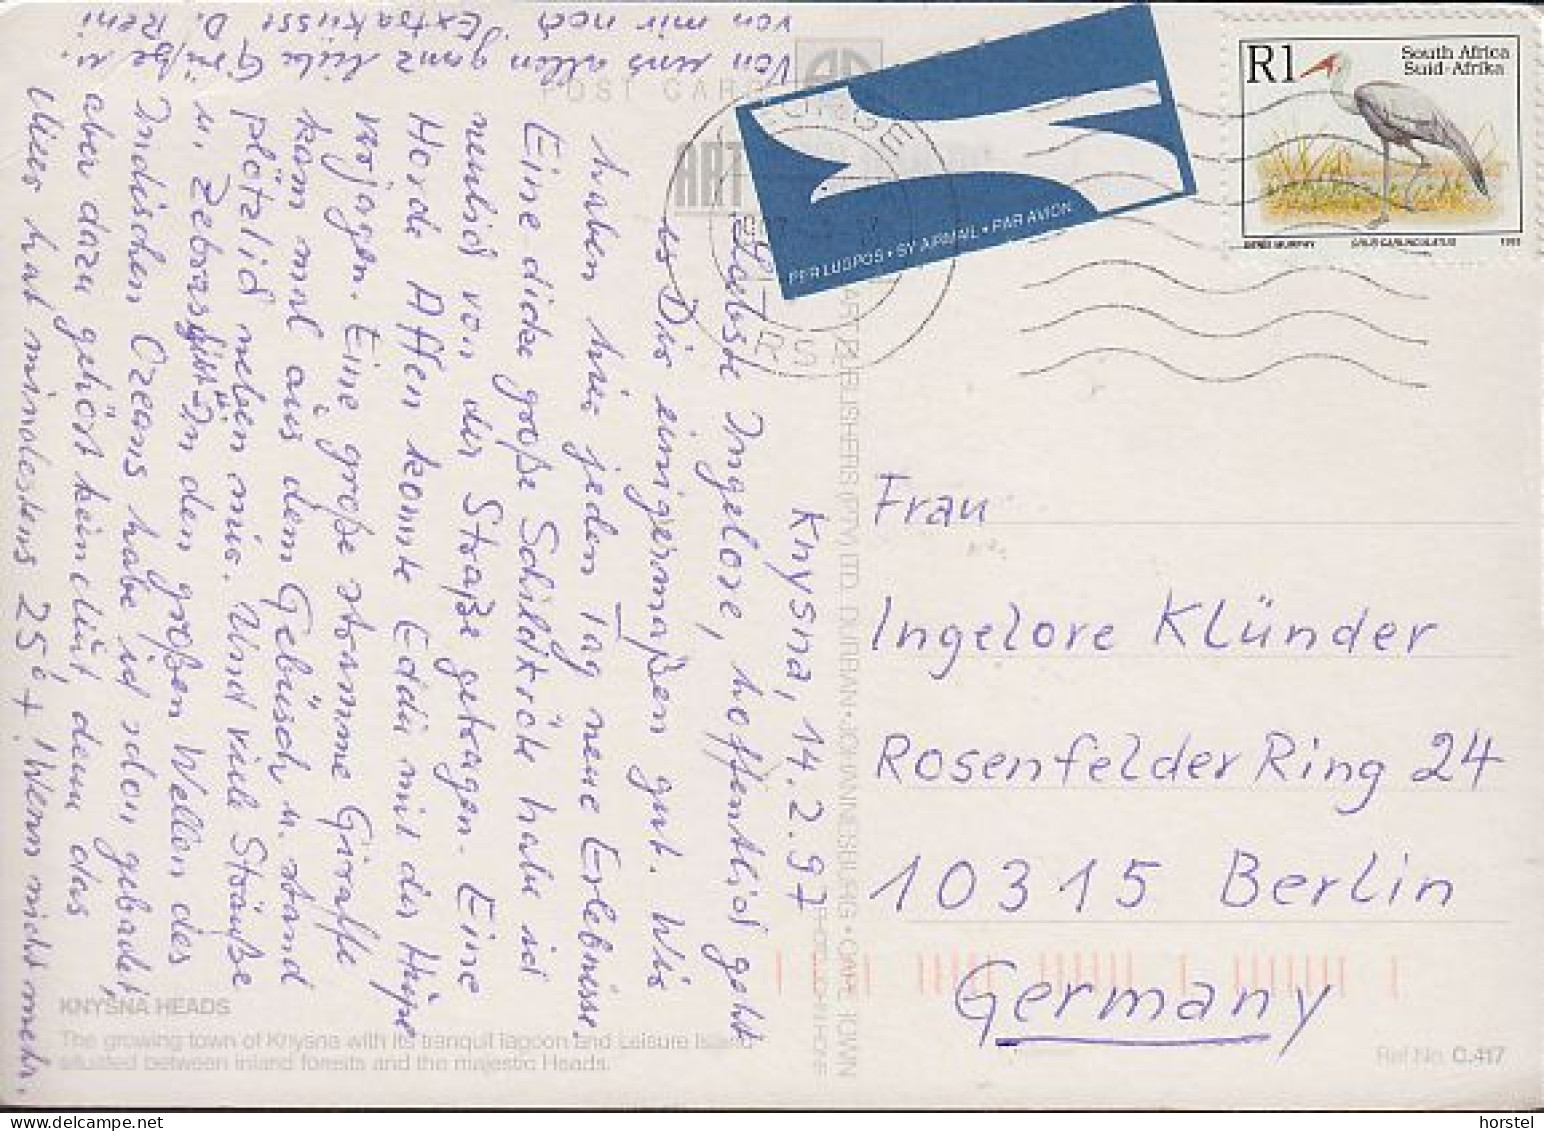 Knysna, 14.2.97
Liebste Ingelore, hoffentlich geht
es Dir einigermaßen gut. Wir
haben hier jeden Tag neue Erlebnisse.
Eine dicke große Schildkröte habe ich
neulich von der Straße getragen. Eine
Horde Affen konnte Eddi mit der Hupe
verjagen. Eine große stramme Giraffe
kam mal aus dem Gebüsch u. stand
plötzlich neben mir. Und viele Strauße
u. Zebras gibt's. In den großen Wellen des
Indischen Ozeans habe ich schon gebadet,
aber dazu gehört kein Mut, denn das
Meer hat mindestens 25° + Wenn nicht mehr.
Von uns allen ganz liebe Grüße u.
von mir noch Extraküsse D. Reni
POST CARD
ART
PER LUGPOS • BY AIRMAIL • PAR AVION
GEORGE
R1
South Africa
Suid-Afrika
DENIS MURPHY
GRUS CARUNCULATUS
1993
ART PUBLISHERS (PTY) LTD. DURBAN • JOHANNESBURG • CAPE TOWN
Frau
Ingelore Klünder
Rosenfelder Ring 24
10315 Berlin
Germany
KNYSNA HEADS
The growing town of Knysna with its tranquil lagoon and Leisure Island
situated between inland forests and the majestic Heads.
Ref No. C.417
horstel